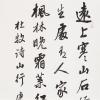 遠上寒山石
生處有人家
楓林晚霜葉
杜牧詩山行